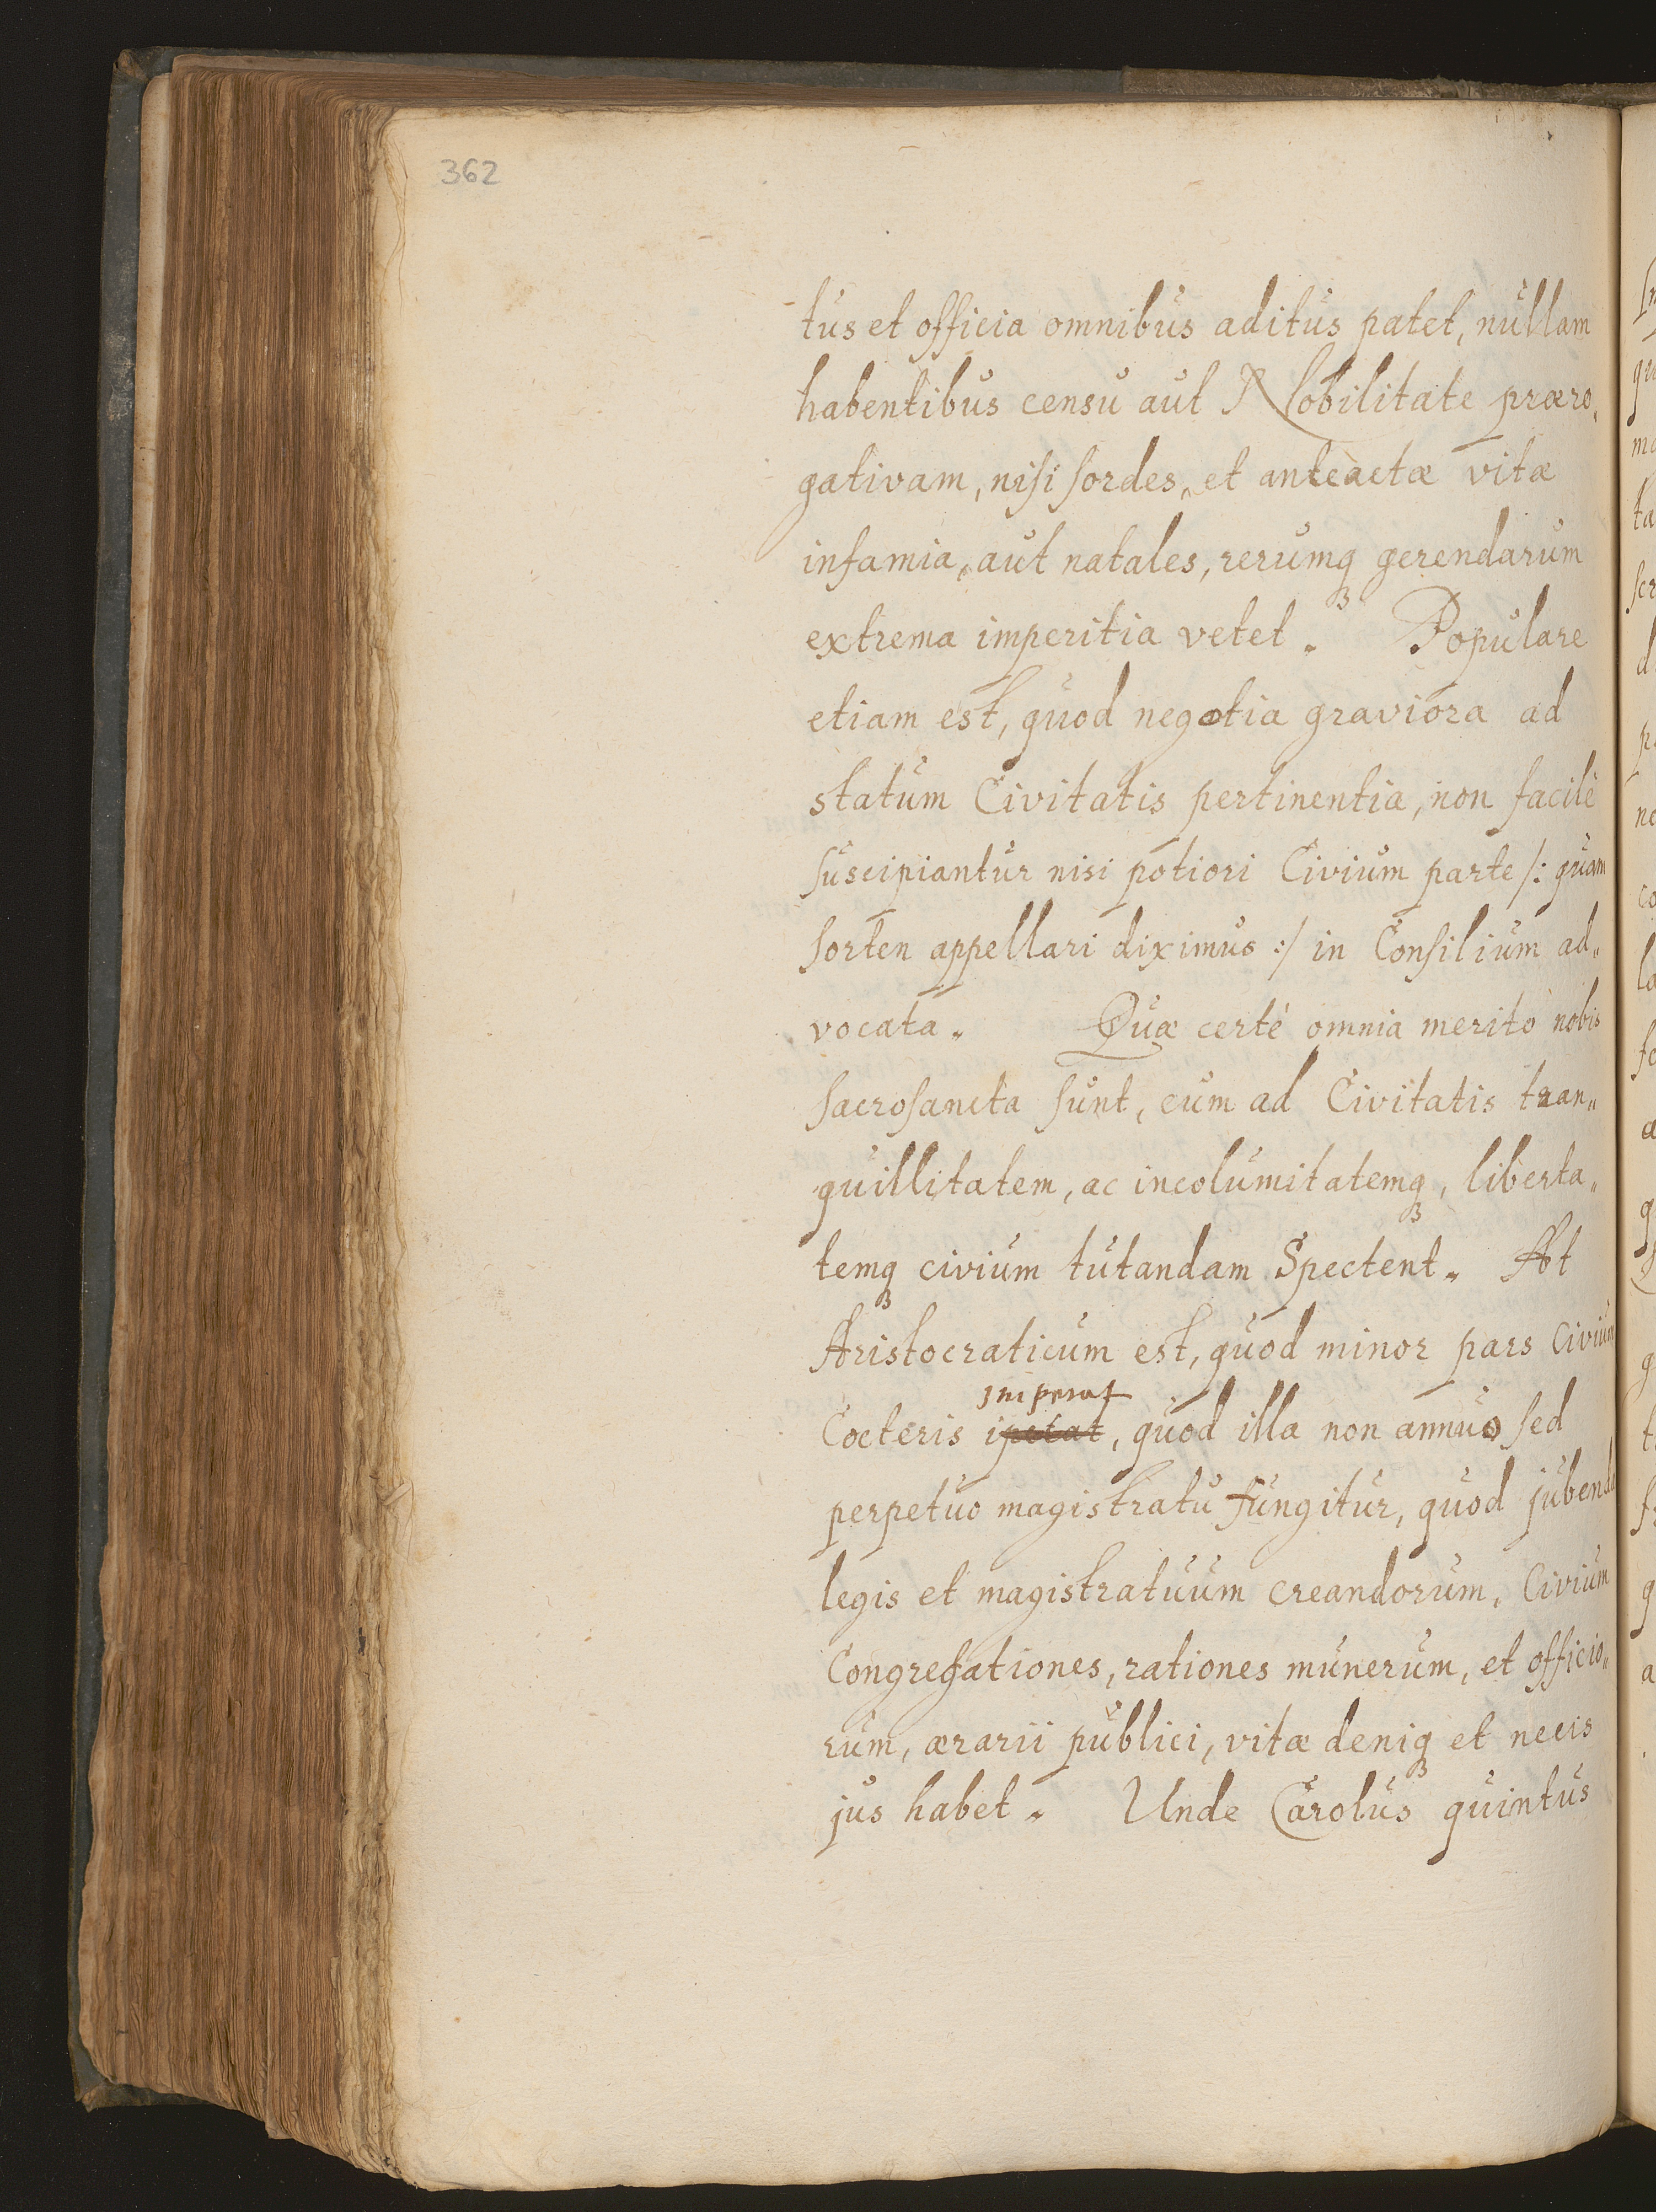 362
tus et officia omnibus aditus patet, nullam
habentibus censu aut Nobilitate præro„
gativam, nisi sordes, et anteàctæ vitæ
infamia, aut natales, rerumq₃ gerendarum
extrema imperitia vetet. Populare
etiam est, quod negotia graviora ad
statum Civitatis pertinentia, non facilè
suscipiantur nisi potiori Civium parte /: quam
sorten appellari diximus :/ in Consilium ad„
vocata. Quæ certé omnia meritò nobis
sacrosancta sunt, cum ad Civitatis tran„
quillitatem, ac incolumitatemq₃, liberta„
temq₃ civium tutandam Spectent. At
Aristocraticum est, quod minor pars Civium
Imperat
Cœteris ipetat, quod illa non annuo sed
perpetuo magistratu fungitur, quod jubendæ
legis et magistratuum creandorum, Civium
Congregationes, rationes munerum, et officio„
rum, ærarii publici, vitæ deniq₃ et necis
jus habet. Unde Carolus quintus